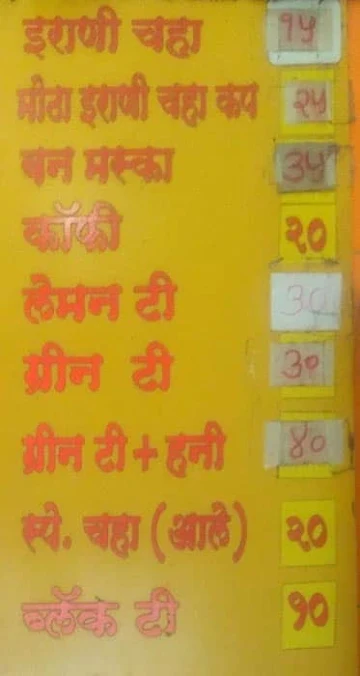 इराणी चहा १५
मोठा इराणी चहा कप २५
बन मस्का ३५
कॉफी २०
लेमन टी 30
ग्रीन टी ३०
ग्रीन टी + हनी ४०
स्पे. चहा (आले) २०
ब्लॅक टी १०